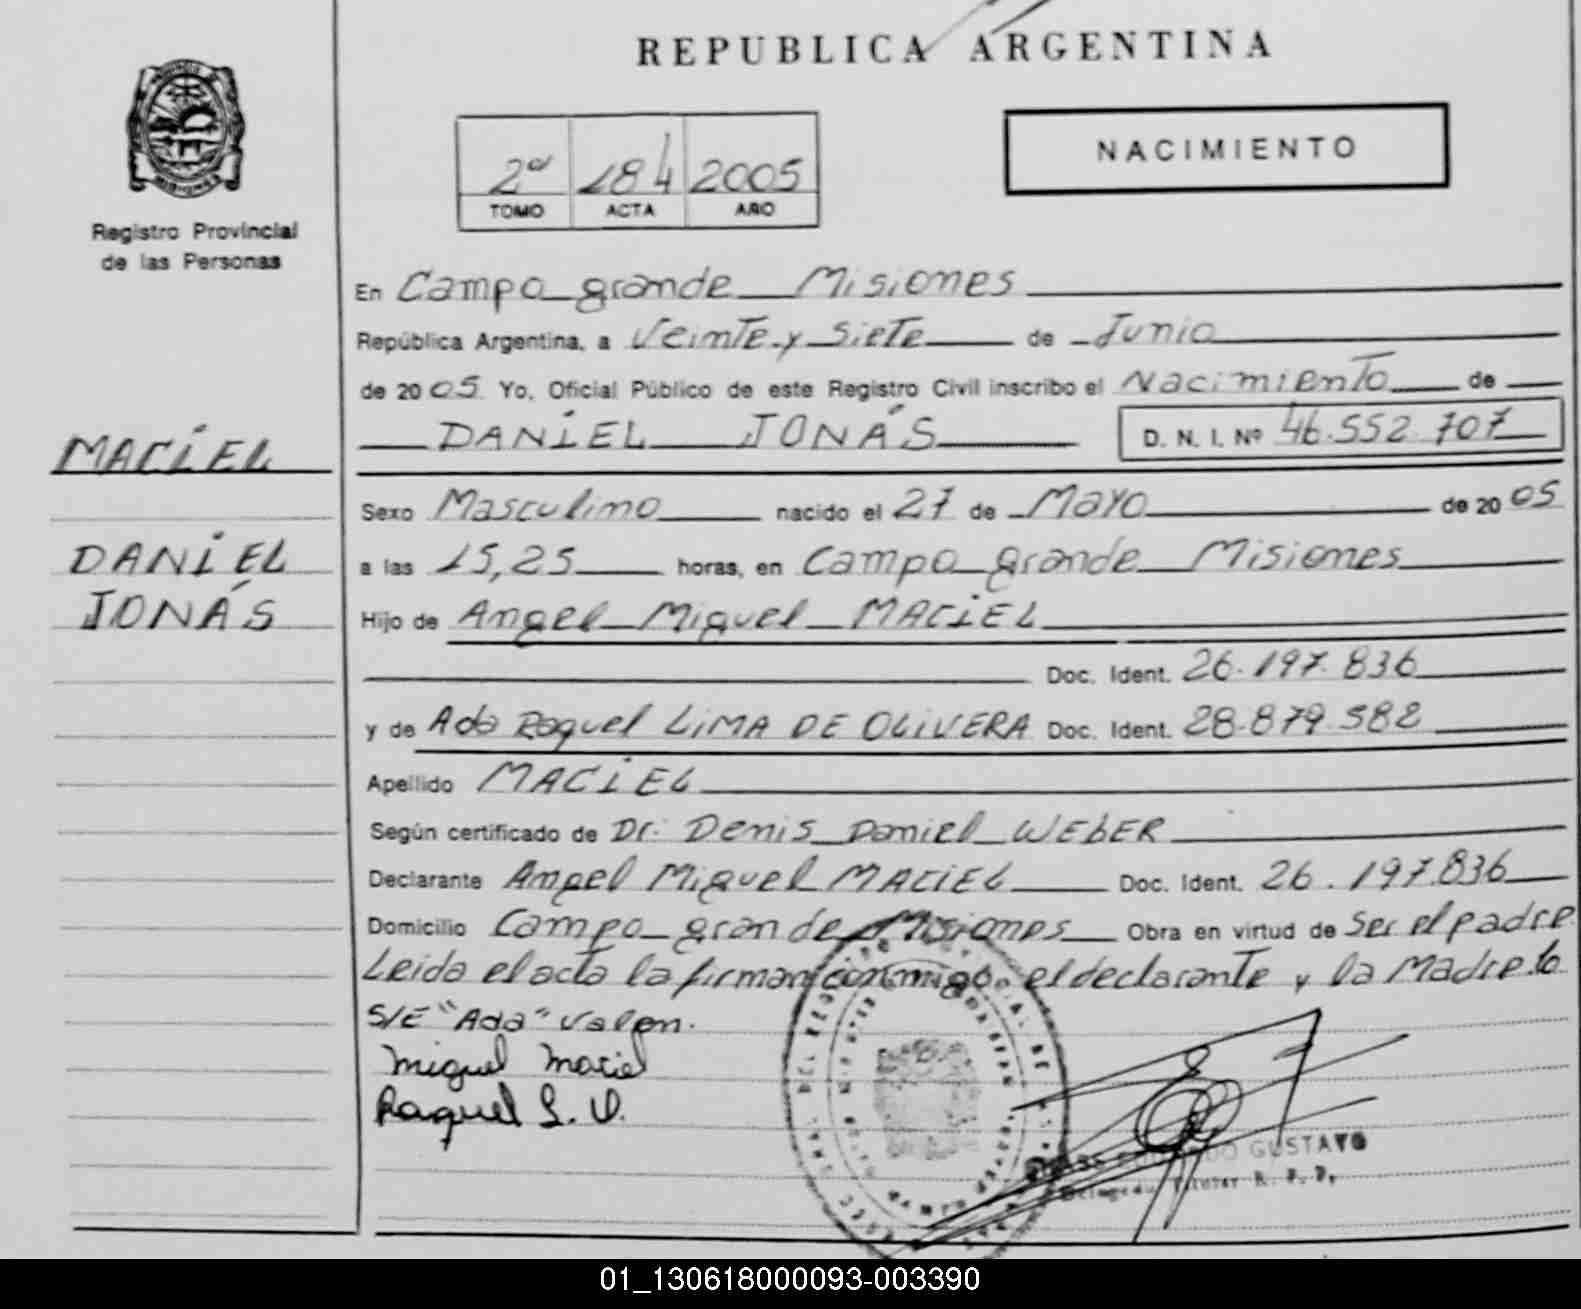 REPUBLICA ARGENTINA
NACIMIENTO
2º 184 2005
TOMO ACTA AÑO
Registro Provincial
de las Personas
En Campo grande Misiones
República Argentina, a Veinte y Siete de Junio
de 2005 Yo, Oficial Público de este Registro Civil inscribo el Nacimiento de
DANIEL JONÁS D. N. I. Nº 46.552.707
MACIEL
DANIEL
JONÁS
Sexo Masculino nacido el 27 de Mayo de 2005
a las 15,25 horas, en Campo grande Misiones
Hijo de Angel Miguel MACIEL
Doc. Ident. 26.197.836
y de Ada Raquel LIMA DE OLIVERA Doc. Ident. 28.879.582
Apellido MACIEL
Según certificado de Dr. Denis Daniel WEBER
Declarante Angel Miguel MACIEL Doc. Ident. 26.197.836
Domicilio Campo grande Misiones Obra en virtud de Ser el padre
Leida el acta la firman conmigo el declarante y la Madre.to
S/E "Ada" Valen.
Miguel Maciel
Raquel L. O.
GUSTAVO
Titular R. P. P.
01_130618000093-003390